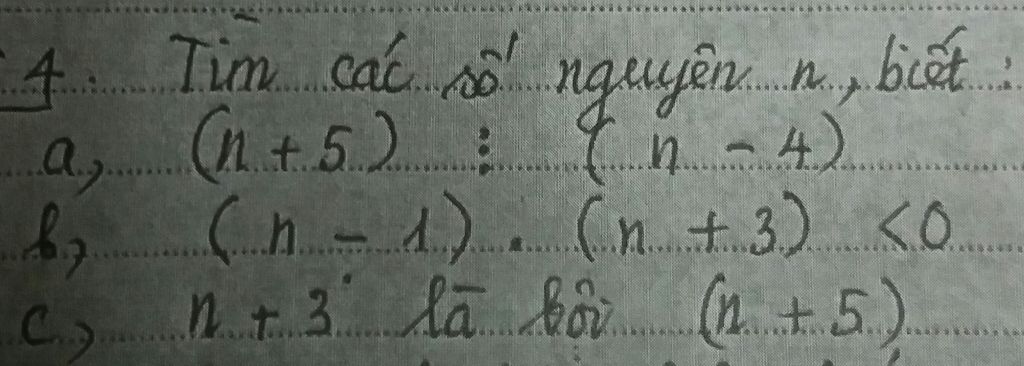 4. Tìm các số nguyên n, biết :
a, (n + 5) ⋮ (n - 4)
b, (n - 1) . (n + 3) < 0
c, n + 3 là bội (n + 5)